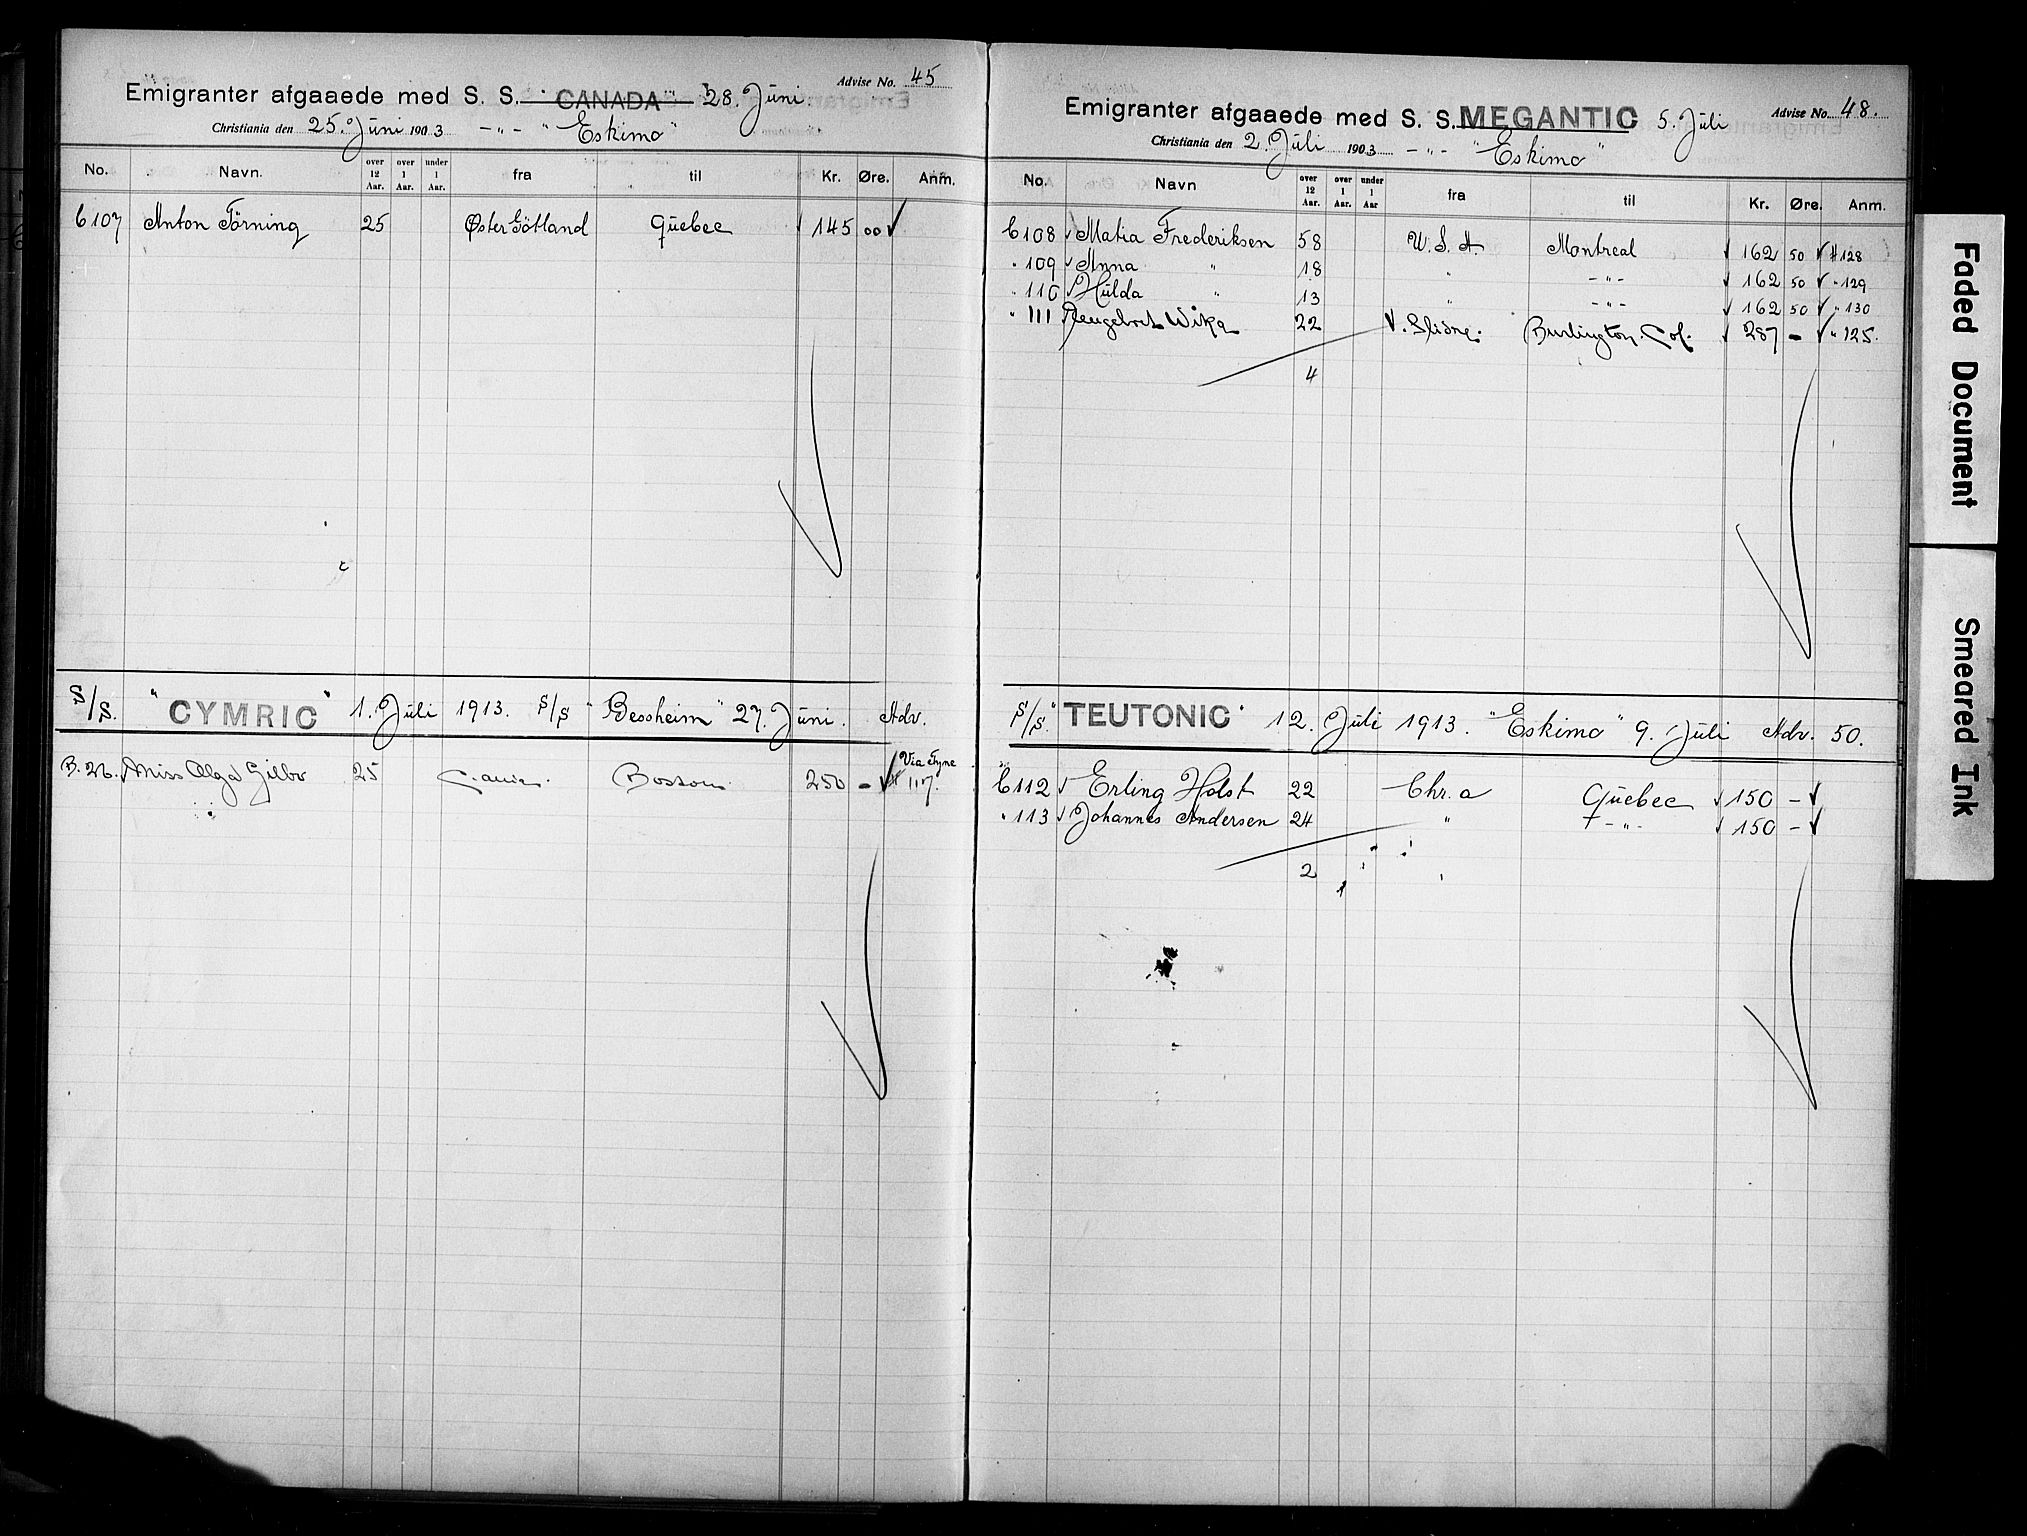 Advise No. 45
Emigranter afgaaede med S. S. "CANADA" 28. Juni
Christiania den 25. Juni 1903 - „ - "Eskimo"
No. Navn. over 12 Aar. over 1 Aar. under 1 Aar. fra til Kr. Øre. Anm.
C 107 Anton Törning 25 Øster Götland Quebec √ 145 00 √
S/S. "CYMRIC" 1. Juli 1913. S/S "Bessheim" 27. Juni. Adv.
Via Tyne
B. 26. Miss Olga Gilbr 25 Boston 250 - √ # 1117.
Advise No. 48.
Emigranter afgaaede med S. S. MEGANTIC 5. Juli
Christiania den 2. Juli 1903 - „ - "Eskimo"
No. Navn over 12 Aar. over 1 Aar. under 1 Aar fra til Kr. Øre. Anm.
C 108 √ Matia Frederiksen 58 U.S.A. Montreal √ 162 50 √ # 128
" 109 √ Anna " 18 " - „ - √ 162 50 √ " 129
" 110 √ Hulda " 13 " - „ - √ 162 50 √ " 130
" 111 Wika 22 V. Slidre. Burlington. Col. √ 287 - √ " 125.
4
S/S. "TEUTONIC" 12. Juli 1913. "Eskimo" 9. Juli Adv. 50.
C 112 √ Erling Holst 22 Chr. a Quebec √ 150 - √
" 113 √ Johannes Andersen 24 " - „ - √ 150 - √
2
Faded Document
Smeared Ink